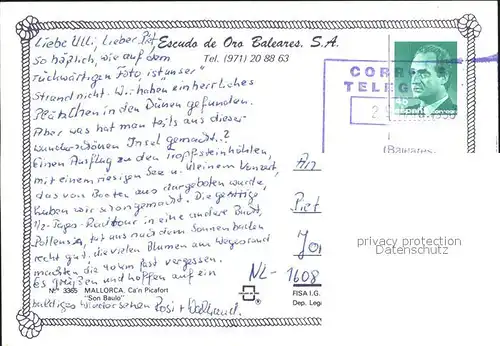 Liebe Ulli, Lieber Piet,
Escudo de Oro Baleares, S.A.
Tel. (971) 20 88 63
So häßlich, wie auf dem
rückwärtigen Foto, ist unser
Strand nicht. Wir haben ein herrliches
Plätzchen in den Dünen gefunden.
Aber was hat man teils aus dieser
wunderschönen Insel gemacht..?
Einen Ausflug zu den Tropfsteinhöhlen,
mit einem riesigen See u. kleinem Konzert,
das von Booten aus dargeboten wurde,
haben wir schon gemacht. Die gestrige
1/2-Tags-Radtour in eine andere Bucht,
Pollensa, tat uns nach dem Sonnenbaden
recht gut, die vielen Blumen am Wegesrand
machten die 40 km fast vergessen.
Es grüßen und hoffen auf ein
baldiges Wiedersehen Rosi + Waltraud.
N.º 3365 MALLORCA. Ca'n Picafort
"Son Baulo"
CORRE
TELEG
(Baleares
An
Piet
NL-1608
FISA I.G.
Dep. Lega
privacy protection
Datenschutz